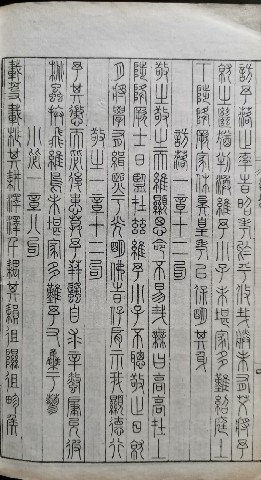 訪予落止率時昭考於乎悠哉朕未有艾將予
就之繼猶判渙維予小子未堪家多難紹庭上
下陟降厥家休矣皇考以保明其身
訪落一章十二句
敬之敬之天維顯思命不易哉無曰高高在上
陟降厥士日監在茲維予小子不聰敬止日就
月將學有緝熙于光明佛時仔肩示我顯德行
敬之一章十二句
予其懲而毖後患莫予荓蜂自求辛螫肇允彼
桃蟲拚飛維鳥未堪家多難予又集于蓼
小毖一章八句
載芟載柞其耕澤澤千耦其耘徂隰徂畛侯